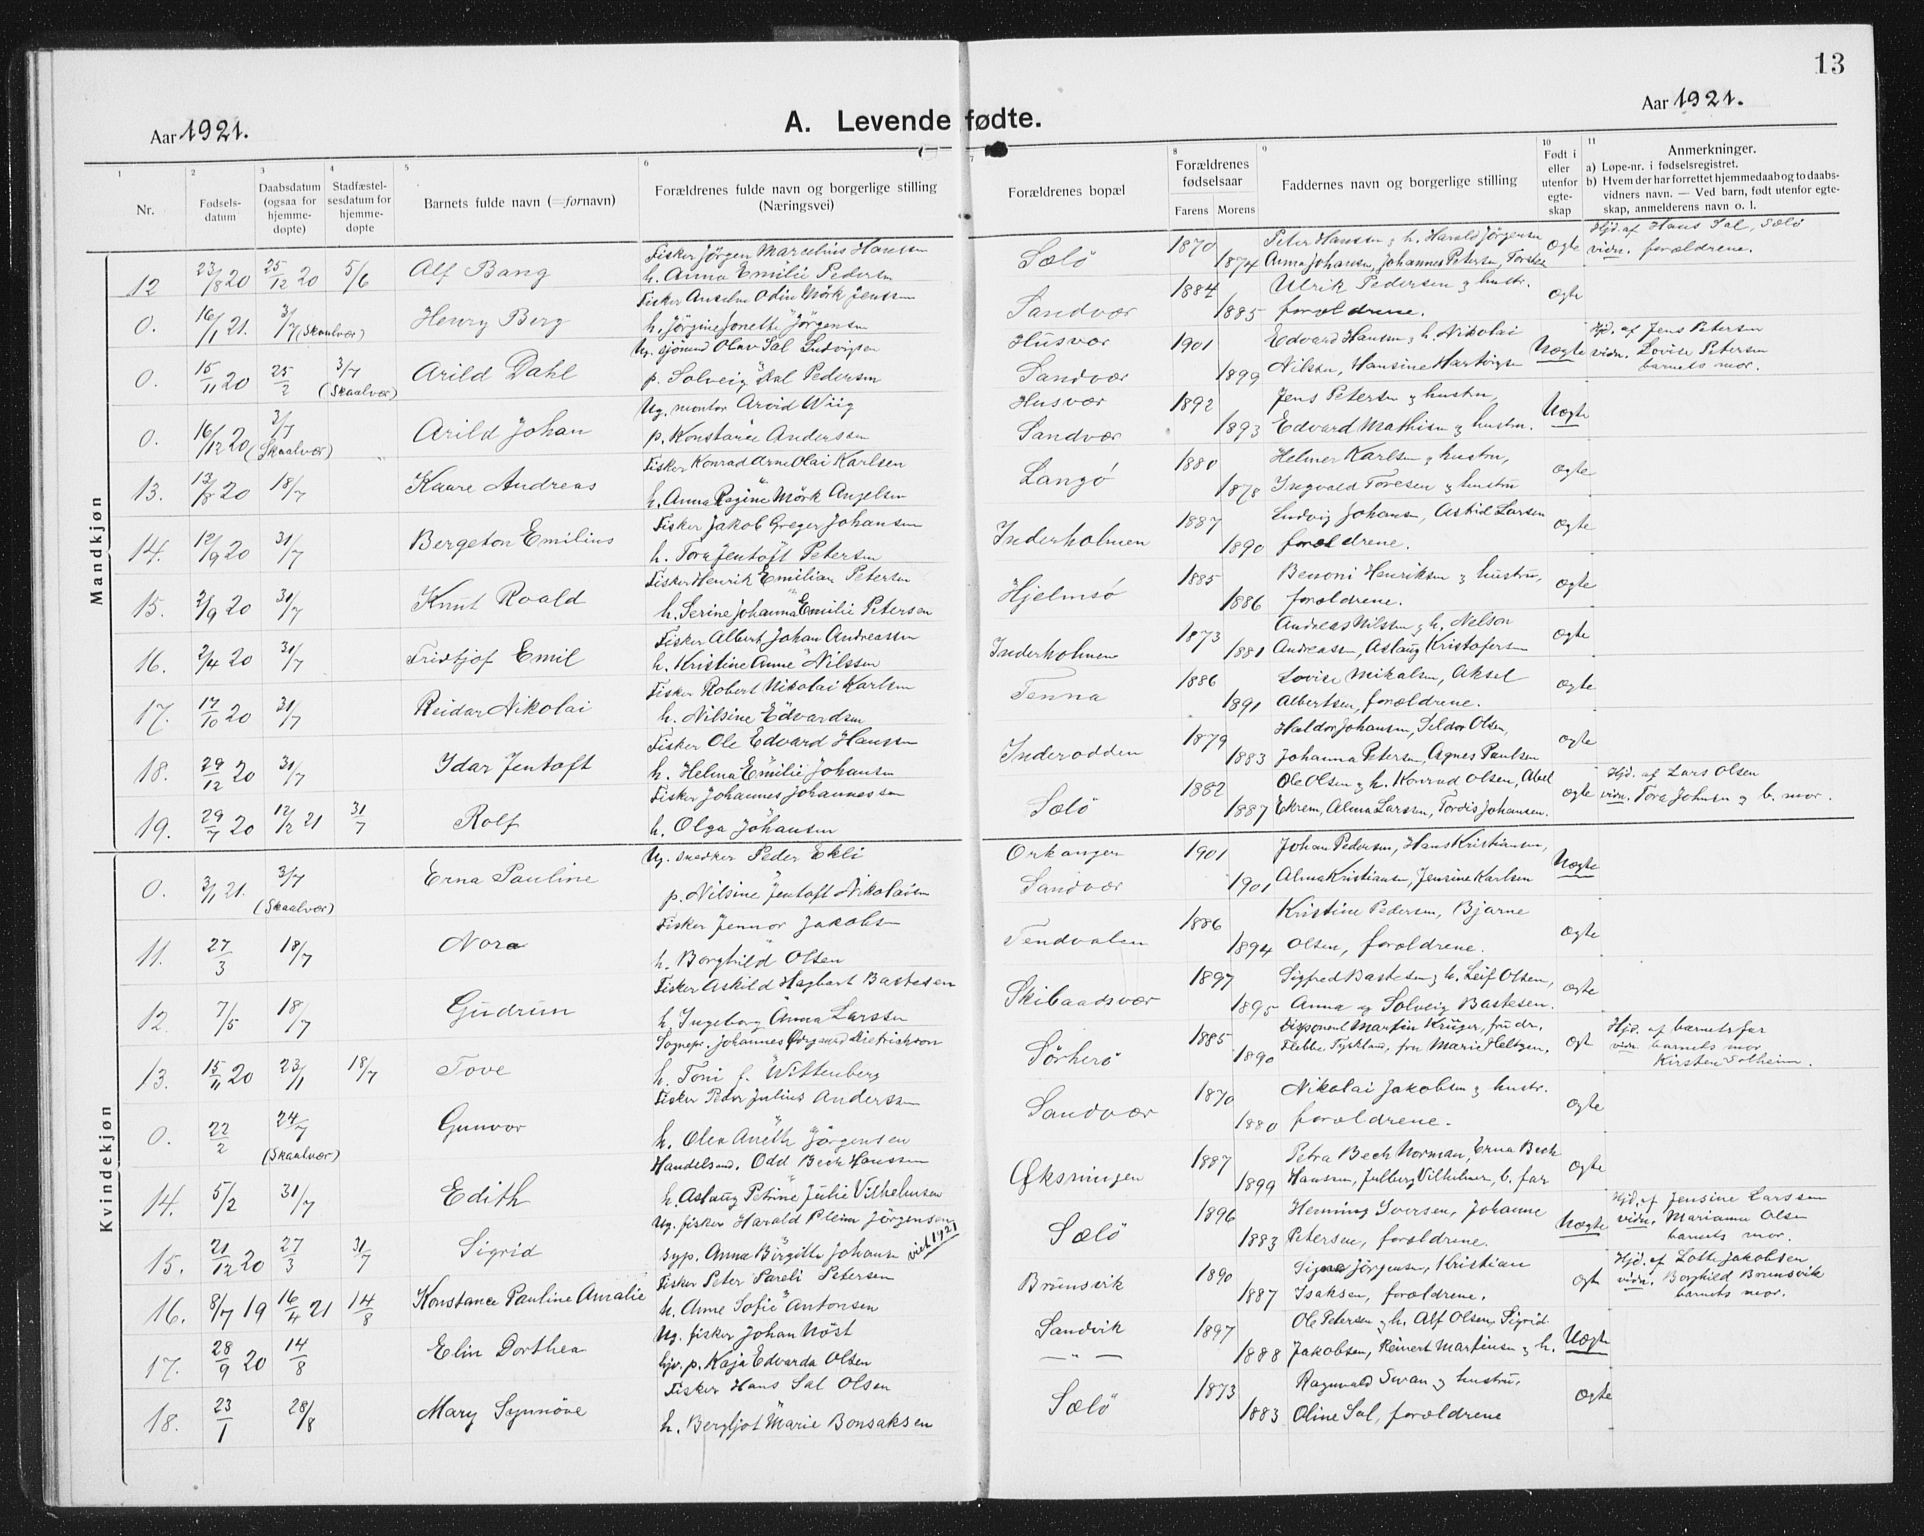 13
Aar 1921.
A. Levende fødte.
Aar 1921.
1 2 3 4 5 6 7 8 9 10 11
Nr.
Fødsels-
datum
Daabsdatum
(ogsaa for
hjemme-
døpte)
Stadfæstel-
sesdatum for
hjemme-
døpte
Barnets fulde navn (=fornavn)
Forældrenes fulde navn og borgerlige stilling
(Næringsvei)
Forældrenes bopæl
Forældrenes
fødselsaar
Farens Morens
Faddernes navn og borgerlige stilling
Født i
eller
utenfor
egte-
skap
Anmerkninger.
a) Løpe-nr. i fødselsregistret.
b) Hvem der har forrettet hjemmedaab og to daabs-
vidners navn. — Ved barn, født utenfor egte-
skap, anmelderens navn o. l.
Mandkjøn
12 23/8 20 25/12 20 5/6 Alf Bang
Fisker Jörgen Marcelius Hanssen
h. Anna Emilie Pedersen
Sælö 1870 1874
Peter Hanssen og h. Harald Jörgensen
Anna Johansen, Johannes Petersen,
ægte
Hjd. af Hans Sal, Sælö
vidn. forældrene.
0. 16/1 21. 3/7 (Skaalvær) Henry Berg
Fisker Anselm Odin Mörk Jenssen
h. Jörgine Jonette Jörgensen
Sandvær 1884 1885
Ulrik Pedersen og hustr.
forældrene.
ægte
0. 15/11 20 25/2 3/7 (Skaalvær) Arild Dahl
Ug. sjömd Olav Sal Ludvigsen
p. Solveig Dal Pedersen
Husvær
Sandvær
1901 1899
Edvard Hansen og h. Nikolai
Nilssen, Hansine Hartvigsen
Uægte
Hjd. af Jens Petersen
vidn. Lovise Petersen
barnets mor.
0. 16/12 20 3/7 (Skaalvær) Arild Johan
Ug. montør Arvid Wiig
p. Konstance Anderssen
Husvær
Sandvær
1892 1893
Jens Petersen og hustru,
Edvard Mathisen og hustru.
Uægte
13. 13/8 20 18/7 Kaare Andreas
Fisker Konrad Arne Olai Karlsen
h. Anna Regine Mörk Angelsen
Langö 1880 1878
Helmer Karlsen og hustru,
Ingvald Toresen og hustru
ægte
14. 12/9 20 31/7 Bergeton Emilius
Fisker Jakob Greger Johansen
h. Tora Jentoft Petersen
Inderholmen 1887 1890
Ludvig Johansen, Astid Larsen
forældrene.
ægte
15. 2/9 20 31/7 Knut Roald
Fisker Henrik Emilian Petersen
h. Serine Johanna Emilie Petersen
Hjelmsö 1885 1886
Benoni Henriksen og hustru,
forældrene.
ægte
16. 2/4 20 31/7 Fridtjof Emil
Fisker Albert Johan Andreassen
h. Kristine Anne Nilssen
Inderholmen 1873 1881
Andreas Nilssen og h. Nelson
Andreasen, Aslaug Kristofersen
ægte
17. 17/10 20 31/7 Reidar Nikolai
Fisker Robert Nikolai Karlsen
h. Nilsine Edvardsen
Tenna 1886 1891
Lovise Mikalsen, Aksel
Albertsen, forældrene.
ægte
18. 29/12 20 31/7 Idar Jentoft
Fisker Ole Edvard Hansen
h. Helma Emilie Johansen
Inderodden 1879 1883
Haldor Johansen, Seldor Olsen,
Johanna Petersen, Agnes Paulsen
ægte
19. 29/7 20 12/2 21 31/7 Rolf
Fisker Johannes Johannessen
h. Olga Johansen
Sælö 1882 1887
Ole Olsen og h. Konrad Olsen, Abel
Ekrem, Alma Larsen, Tordis Johansen.
ægte
Hjd. af Lars Olsen
vidn. Tora Johnsen og b. mor.
Kvindekjøn
0. 3/1 21. 3/7 (Skaalvær) Erna Pauline
Ug. snedker Peder Ekli
p. Nilsine Jentoft Nikolaisen
Orkanger
Sandvær
1901 1901
Johan Pedersen, Hans Kristiansen,
Alma Kristiansen, Jensine Karlsen
Uægte
11. 27/3 18/7 Nora
Fisker Jennor Jakobsen
h. Borghild Olsen
Tendvalen 1886 1894
Kristine Pedersen, Bjarne
Olsen, forældrene.
ægte
12. 7/5 18/7 Gudrun
Fisker Askild Hagbart Bastesen
h. Ingeborg Anna Larssen
Skibaadsvær 1897 1895
Sigfred Bastesen og h. Leif Olsen,
Anna og Solveig Bastesen.
ægte
13. 15/11 20 23/1 18/7 Tove
Sognepr. Johannes Ørgaard Dietrichson
h. Toni f. Wittenberg
Sörherö 1885 1890
Disponent Martin Krüger, fru dr.
Flebbe, Tyskland, fru Marie Heltzen.
ægt
Hjd. af barnets far
vidn. barnets mor
Kirsten Solheim.
0. 22/2 24/7 (Skaalvær) Gunvor
Fisker Peder Julius Anderssen
h. Olea Aneth Jörgensen
Sandvær 1870 1880
Nikolai Jakobsen og hustr.
forældrene.
ægte
14. 5/2 31/7 Edith
Handelsmd. Odd Bech Hanssen
h. Aslaug Petrine Julie Vilhelmsen
Øksningen 1887 1899
Petra Bech Norman, Erna Bech
Hanssen, Julberg Vilhelmsen, b. far
ægte
15. 21/12 20 27/3 31/7 Sigrid
Ug. fisker Harald Pleim Jörgensen
syp. Anna Birgitte Johansen viet 1921
Sælö 1896 1883
Henning Iversen, Johanne
Petersen, forældrene.
Uægte
Hjd. af Jensine Larssen
vidn. Marianne Olsen
barnets mor.
16. 8/7 19 16/4 21 14/8 Konstance Pauline Amalie
Fisker Peter Pareli Petersen
h. Anne Sofie Antonsen
Brunsvik 1890 1887
Signe Jörgensen, Kristian
Isaksen, forældrene.
ægte
Hjd. af Lotte Jakobsen
vidn. Borghild Brunsvik
barnets mor.
17. 28/9 20 14/8 Elin Dorthea
Ug. fisker Johan Nöst
hjv. p. Kaja Edvarda Olsen
Sandvik
— " —
1897 1888
Ole Petersen og h. Alf Olsen, Sigrid
Jakobsen, Reinert Martinsen og h.
Uægte
18. 23/1 28/8 Mary Synnöve
Fisker Hans Sal Olsen
h. Bergljot Marie Bonsaksen
Sælö 1873 1883
Ragnvald Swan og hustru,
Oline Sal, forældrene
ægte